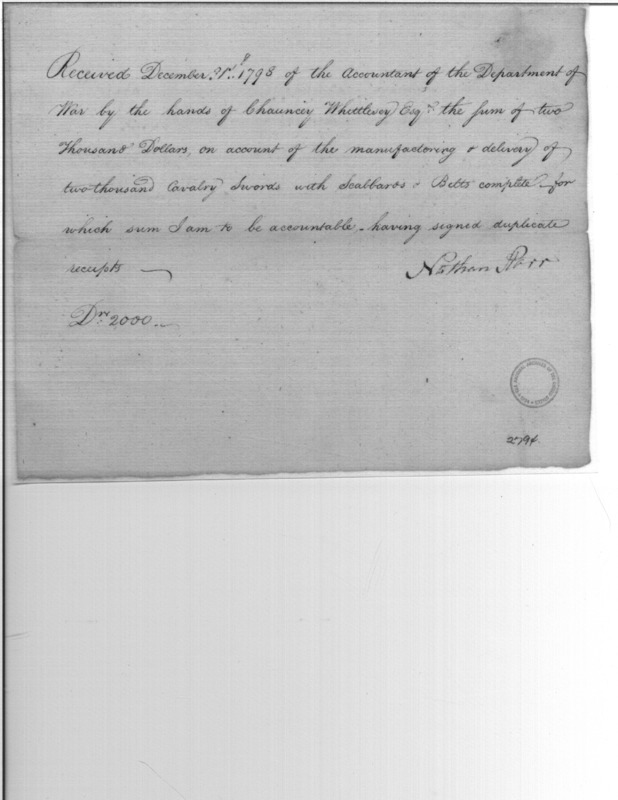 Received December 21st. 1798 of the Accountant of the Department of
War by the hands of Chauncey Whittlesey Esqr. the sum of two
Thousand Dollars, on account of the manufactoring & delivery of
two thousand Cavalry Swords with Scabbards & Belts complete - for
which sum I am to be accountable - having signed duplicate
receipts
Nathan Starr
Drs. 2000.